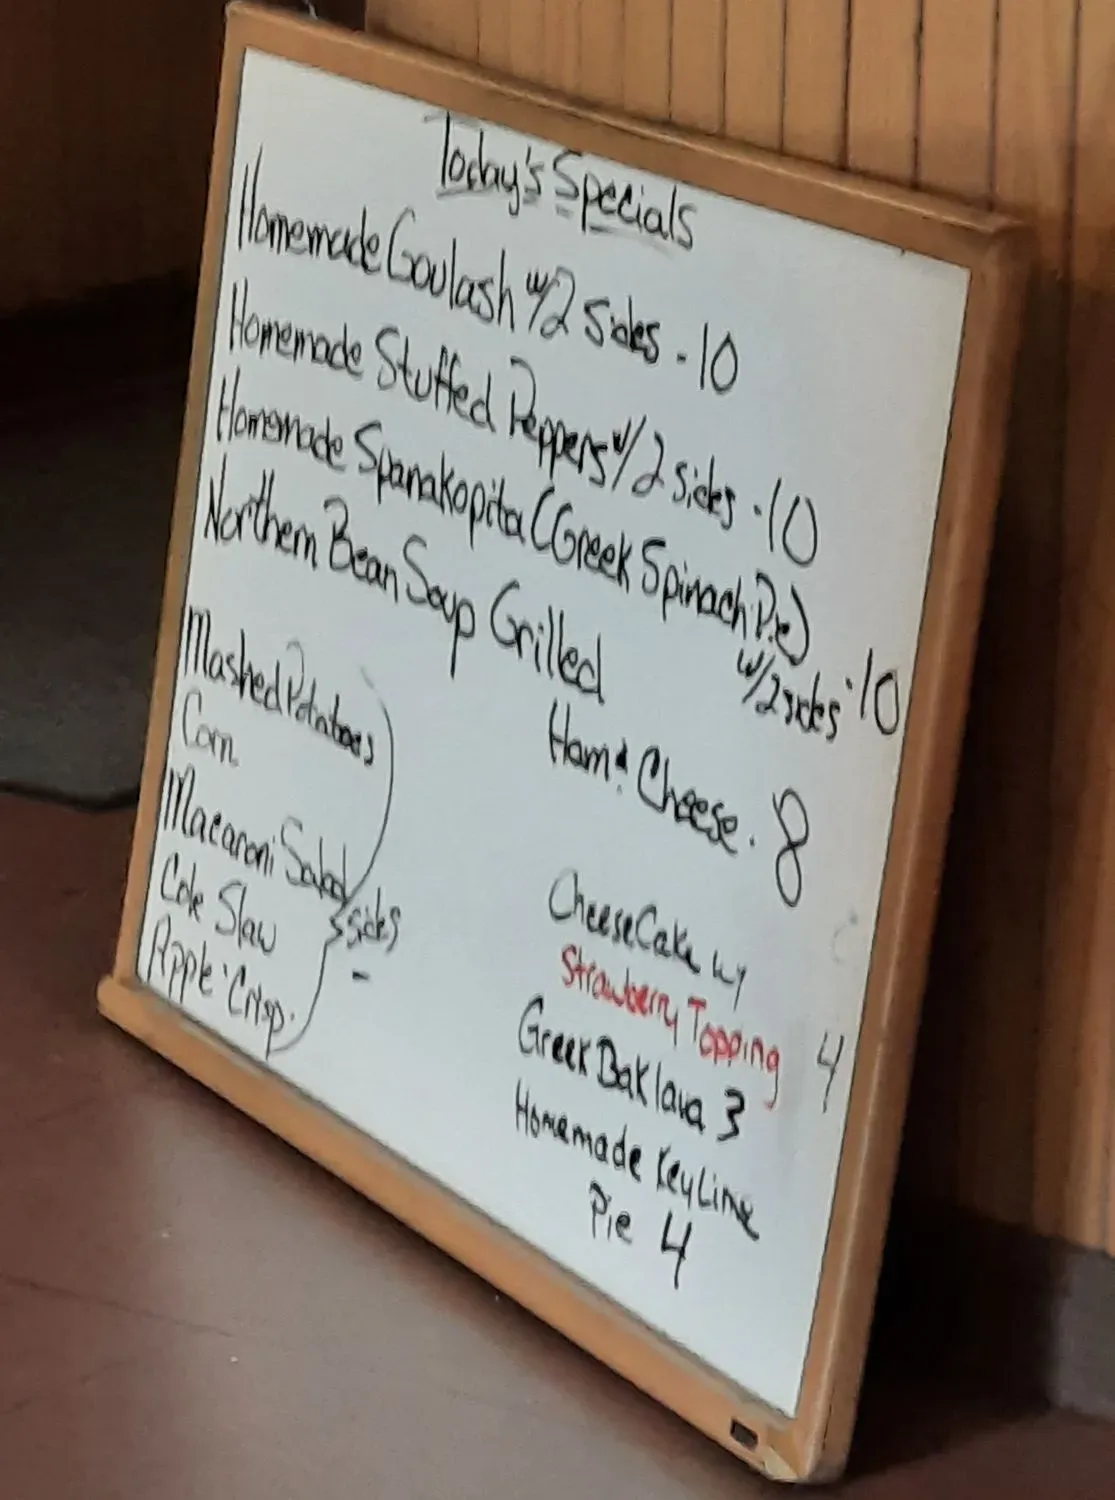 Today's Specials
Homemade Goulash w/2 sides - 10
Homemade Stuffed Peppers w/2 sides - 10
Homemade Spanakopita (Greek Spinach Pie)
w/2 sides - 10
Northern Bean Soup Grilled
Ham & Cheese - 8
Mashed Potatoes
Corn
Macaroni Salad
Cole Slaw
Apple Crisp
sides
CheeseCake w/
Strawberry Topping 4
Greek Baklava 3
Homemade Key Lime
Pie 4